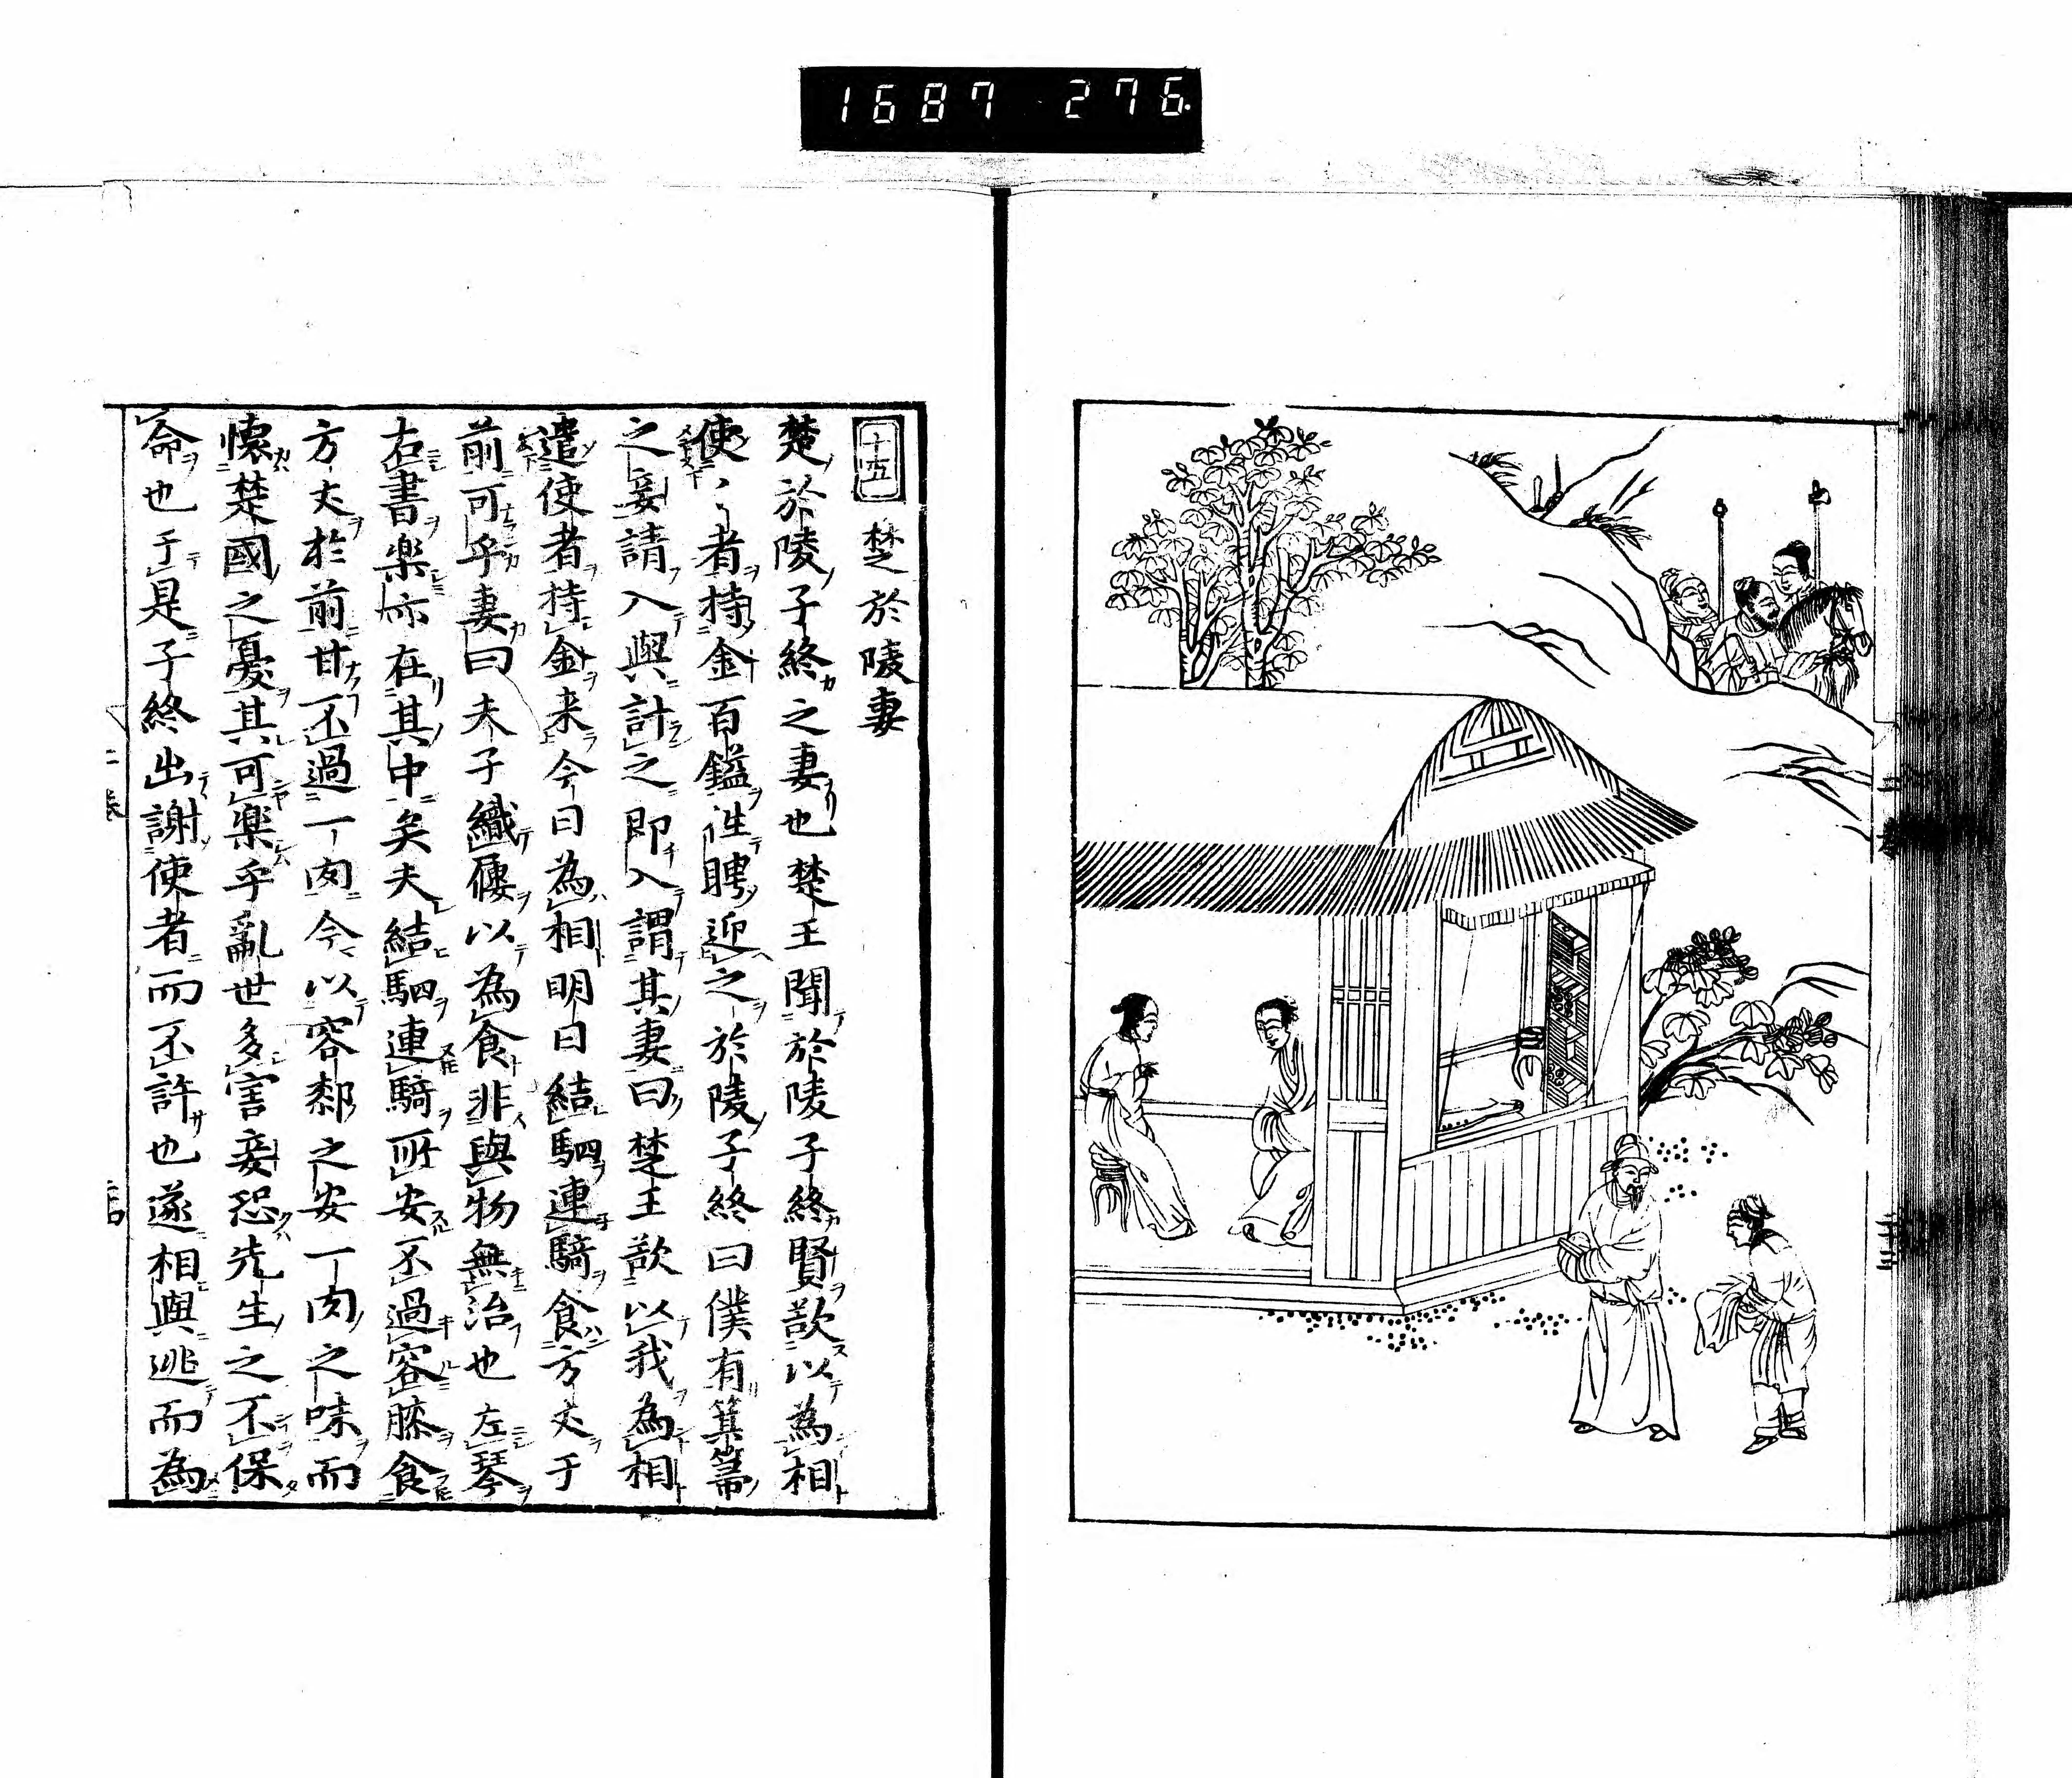 1687 276
十五 楚於陵妻
楚於陵子終之妻也楚王聞於陵子終賢欲以為相
使〻者持金百鎰往聘迎之於陵子終曰僕有箕箒
之妾請入與計之即入謂其妻曰楚王欲以我為相
遣使者持金来今日為相明日結駟連騎食方丈于
前可乎妻曰夫子織屨以為食非與物無治也左琴
右書楽亦在其中矣夫結駟連騎所安不過容膝食
方丈於前甘不過一肉今以容膝之安一肉之味而
懐楚國之憂其可楽乎亂世多害妾恐先生之不保
命也于是子終出謝使者而不許也遂相與逃而為